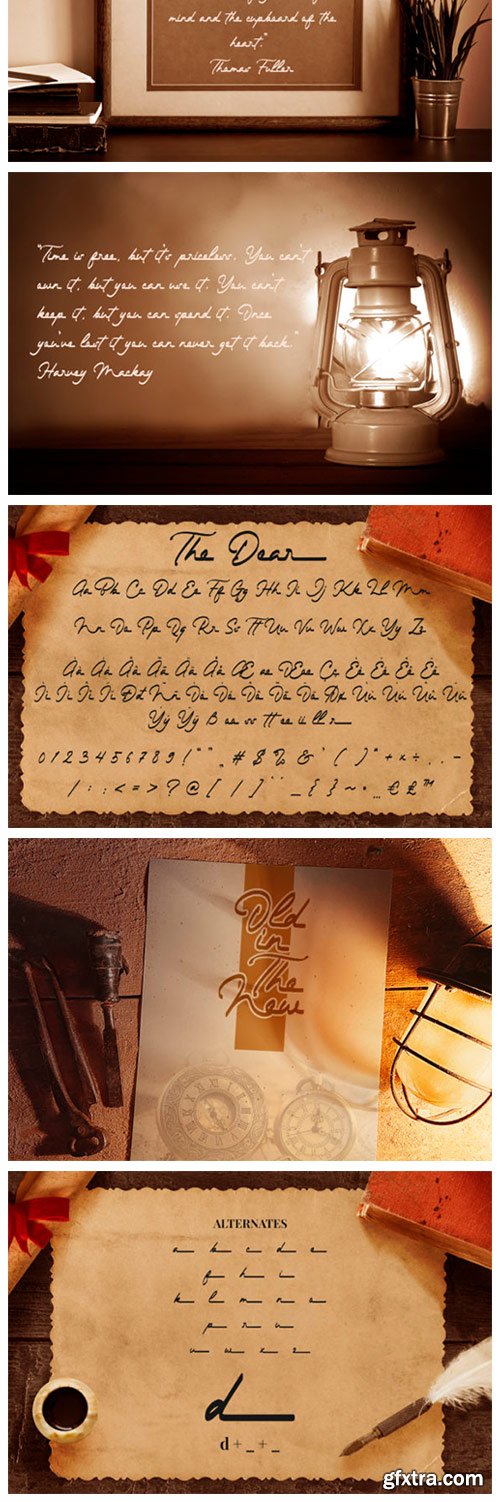 mind and the cupboard of the
heart."
Thomas Fuller
"Time is free, but it's priceless. You can't
own it, but you can use it. You can't
keep it, but you can spend it. Once
you've lost it you can never get it back."
Harvey Mackay
The Dear
Aa Bb Cc Dd Ee Ff Gg Hh Ii Jj Kk Ll Mm
Nn Oo Pp Qq Rr Ss Tt Uu Vv Ww Xx Yy Zz
0 1 2 3 4 5 6 7 8 9 ! " " „ # $ % & ' ( ) * + × ÷ , . -
/ : ; < = > ? @ [ / ] ¨ ¨ _ { } ~ • … € £ ™
Old
in
The
New
ALTERNATES
a b c d e
f h i
k l m n o
p r u
u w x z
d
d + _ + _
gfxtra.com